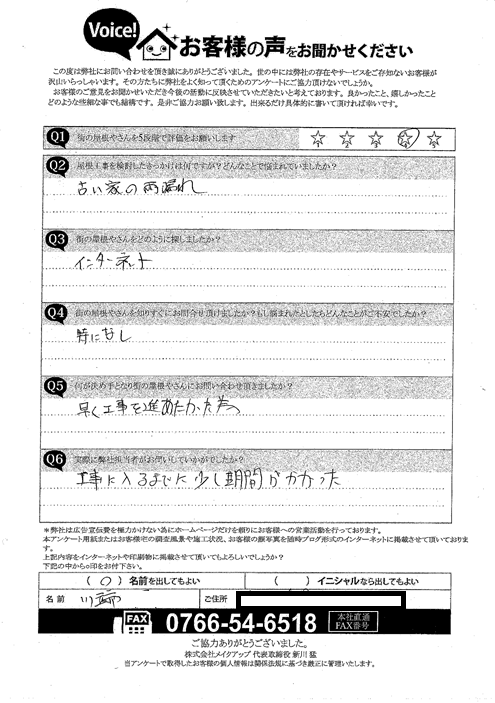 Voice!
お客様の声をお聞かせください
この度は弊社にお問い合わせを頂き誠にありがとうございました。世の中には弊社の存在やサービスをご存知ないお客様が
沢山いらっしゃいます。その方たちに弊社をよく知って頂くためのアンケートにご協力頂けないでしょうか。
お客様のご意見をお聞かせいただき今後の活動に反映させていただきたいと考えております。良かったこと、嬉しかったこと
どのような些細な事でも結構です。是非ご協力お願い致します。出来るだけ具体的に書いて頂ければ幸いです。
Q1 街の屋根やさんを5段階で評価をお願いします ☆ ☆ ☆ ☆ ☆
Q2 屋根工事を検討したきっかけは何ですか?どんなことで悩まれていましたか?
古い家の雨漏れ
Q3 街の屋根やさんをどのように探しましたか?
インターネット
Q4 街の屋根やさんを知りすぐにお問合せ頂けましたか?もし悩まれたとしたらどんなことがご不安でしたか?
特になし
Q5 何が決め手となり街の屋根やさんにお問い合わせ頂きましたか?
早く工事を進めたかった為
Q6 実際に弊社担当者がお伺いしていかがでしたか?
工事に入るまでに少し期間がかかった
※弊社は広告宣伝費を極力かけない為にホームページだけを頼りにお客様への営業活動を行っております。
本アンケート用紙またはお客様宅の調査風景や施工状況、お客様の顔写真を随時ブログ形式のインターネットに掲載させて頂いておりま
す。
上記内容をインターネットや印刷物に掲載させて頂いてもよろしいでしょうか?
下記の中から○印をお付下さい。
( ○ ) 名前を出してもよい ( ) イニシャルなら出してもよい
名前 ご住所
FAX 0766-54-6518 本社直通 FAX番号
ご協力ありがとうございました。
株式会社メイクアップ 代表取締役 新川 猛
当アンケートで取得したお客様の個人情報は関係法規に基づき厳正に管理いたします。